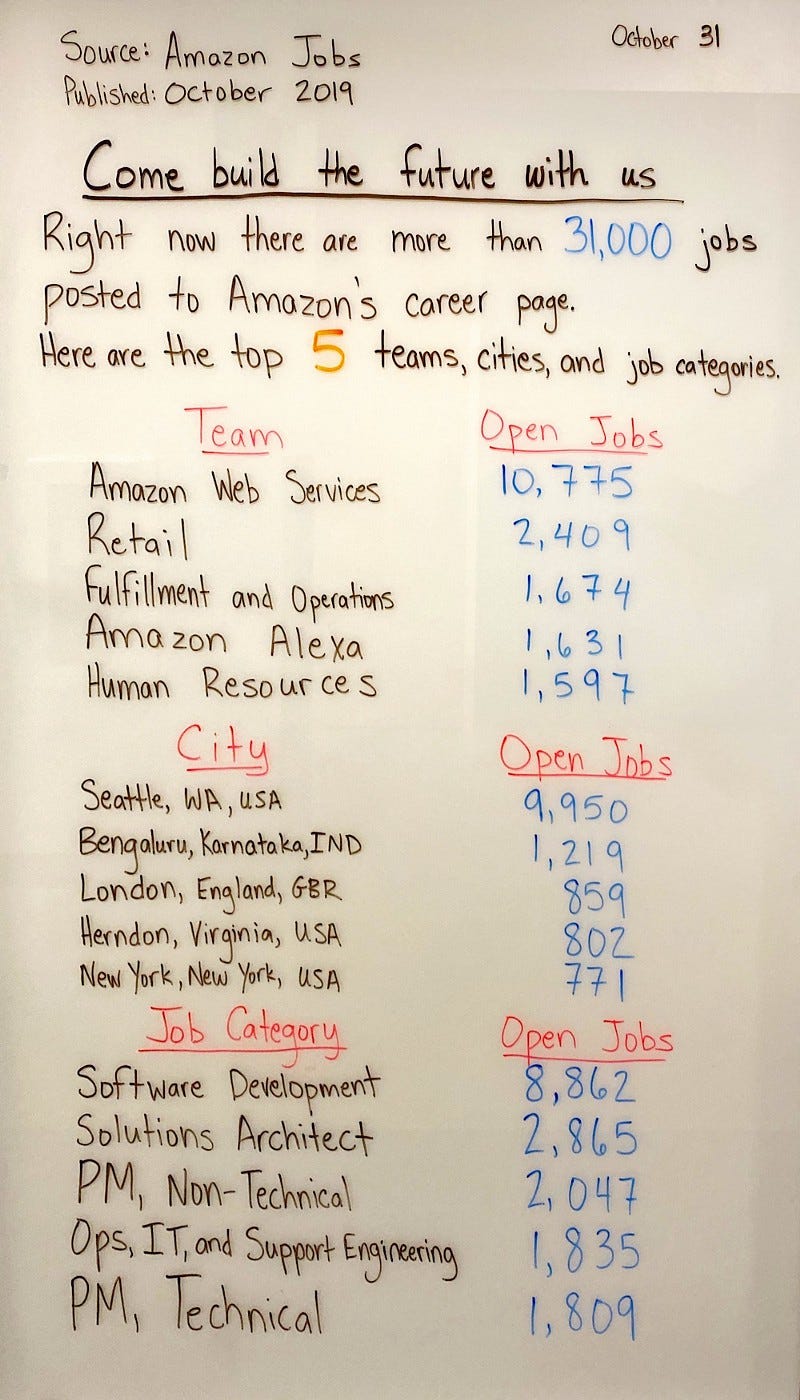 October 31
Source: Amazon Jobs
Published: October 2019
Come build the future with us
Right now there are more than 31,000 jobs
posted to Amazon's career page.
Here are the top 5 teams, cities, and job categories.
Team Open Jobs
Amazon Web Services 10,775
Retail 2,409
Fulfillment and Operations 1,674
Amazon Alexa 1,631
Human Resources 1,597
City Open Jobs
Seattle, WA, USA 9,950
Bengaluru, Karnataka, IND 1,219
London, England, GBR 859
Herndon, Virginia, USA 802
New York, New York, USA 771
Job Category Open Jobs
Software Development 8,862
Solutions Architect 2,865
PM, Non-Technical 2,047
Ops, IT, and Support Engineering 1,835
PM, Technical 1,809